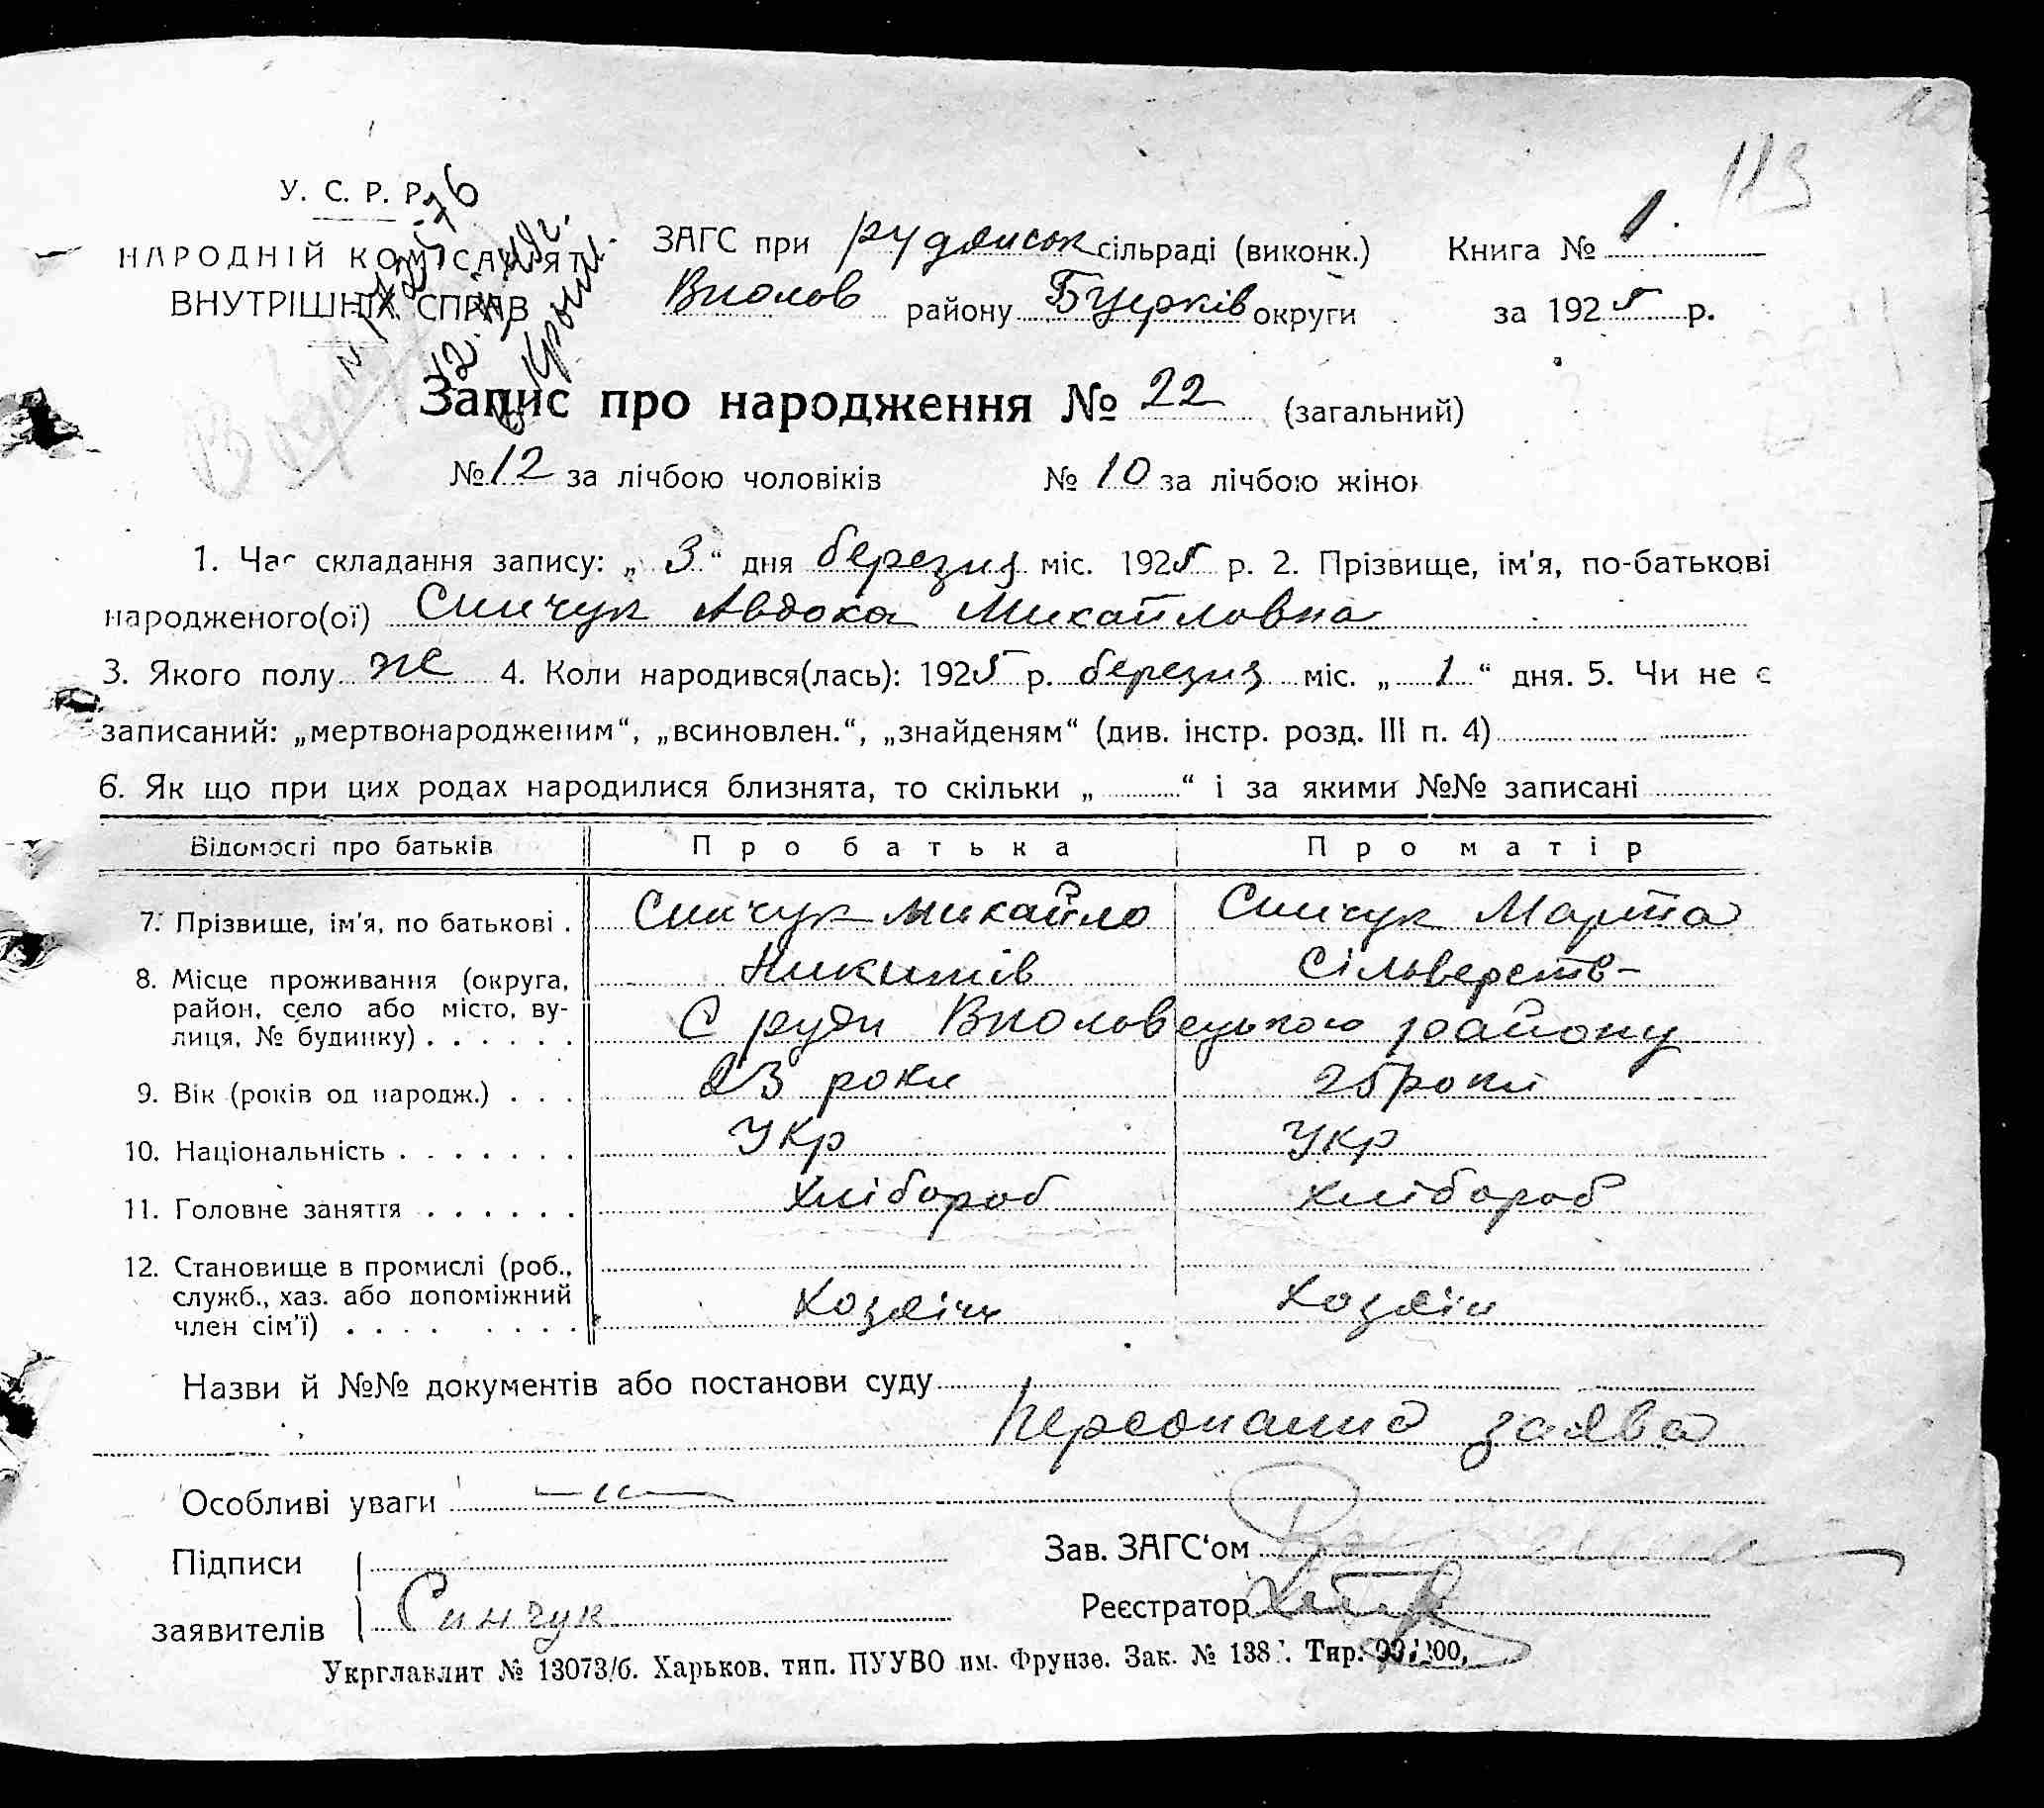 113
У. С. Р. Р.
НАРОДНІЙ КОМІСАРІЯТ
ВНУТРІШНІХ СПРАВ
ЗАГС при рудянськ сільраді (виконк.) Книга № 1
району округи за 1925 р.
Запис про народження № 22 (загальний)
№ 12 за лічбою чоловіків № 10 за лічбою жінок
1. Час складання запису: „ 3 “ дня березня міс. 1925 р. 2. Прізвище, ім'я, по-батькові
народженого(ої) Синчук Авдока Михайловна
3. Якого полу же 4. Коли народився(лась): 1925 р. березня міс. „ 1 “ дня. 5. Чи не є
записаний: „мертвонародженим“, „всиновлен.“, „знайденям“ (див. інстр. розд. III п. 4)
6. Як що при цих родах народилися близнята, то скільки „ “ і за якими №№ записані
Відомості про батьків Про батька Про матір
7. Прізвище, ім'я, по батькові . Синчук Михайло Синчук Марта
Никитів Сільверств-
8. Місце проживання (округа,
район, село або місто, ву-
лиця, № будинку) . . . . . . С руди району
9. Вік (років од народж.) . . . 23 роки 25 роки
10. Національність . . . . . . . Укр Укр
11. Головне заняття . . . . . . Хлібороб хлібороб
12. Становище в промислі (роб.,
служб., хаз. або допоміжний
член сім'ї) . . . . . . . . Хозяін Хозяін
Назви й №№ документів або постанови суду
Персонална заява
Особливі уваги
Підписи
заявителів Синчук
Зав. ЗАГС'ом
Реєстратор
Укрглавлит № 13073/б. Харьков, тип. ПУУВО им. Фрунзе. Зак. № 138 . Тир.